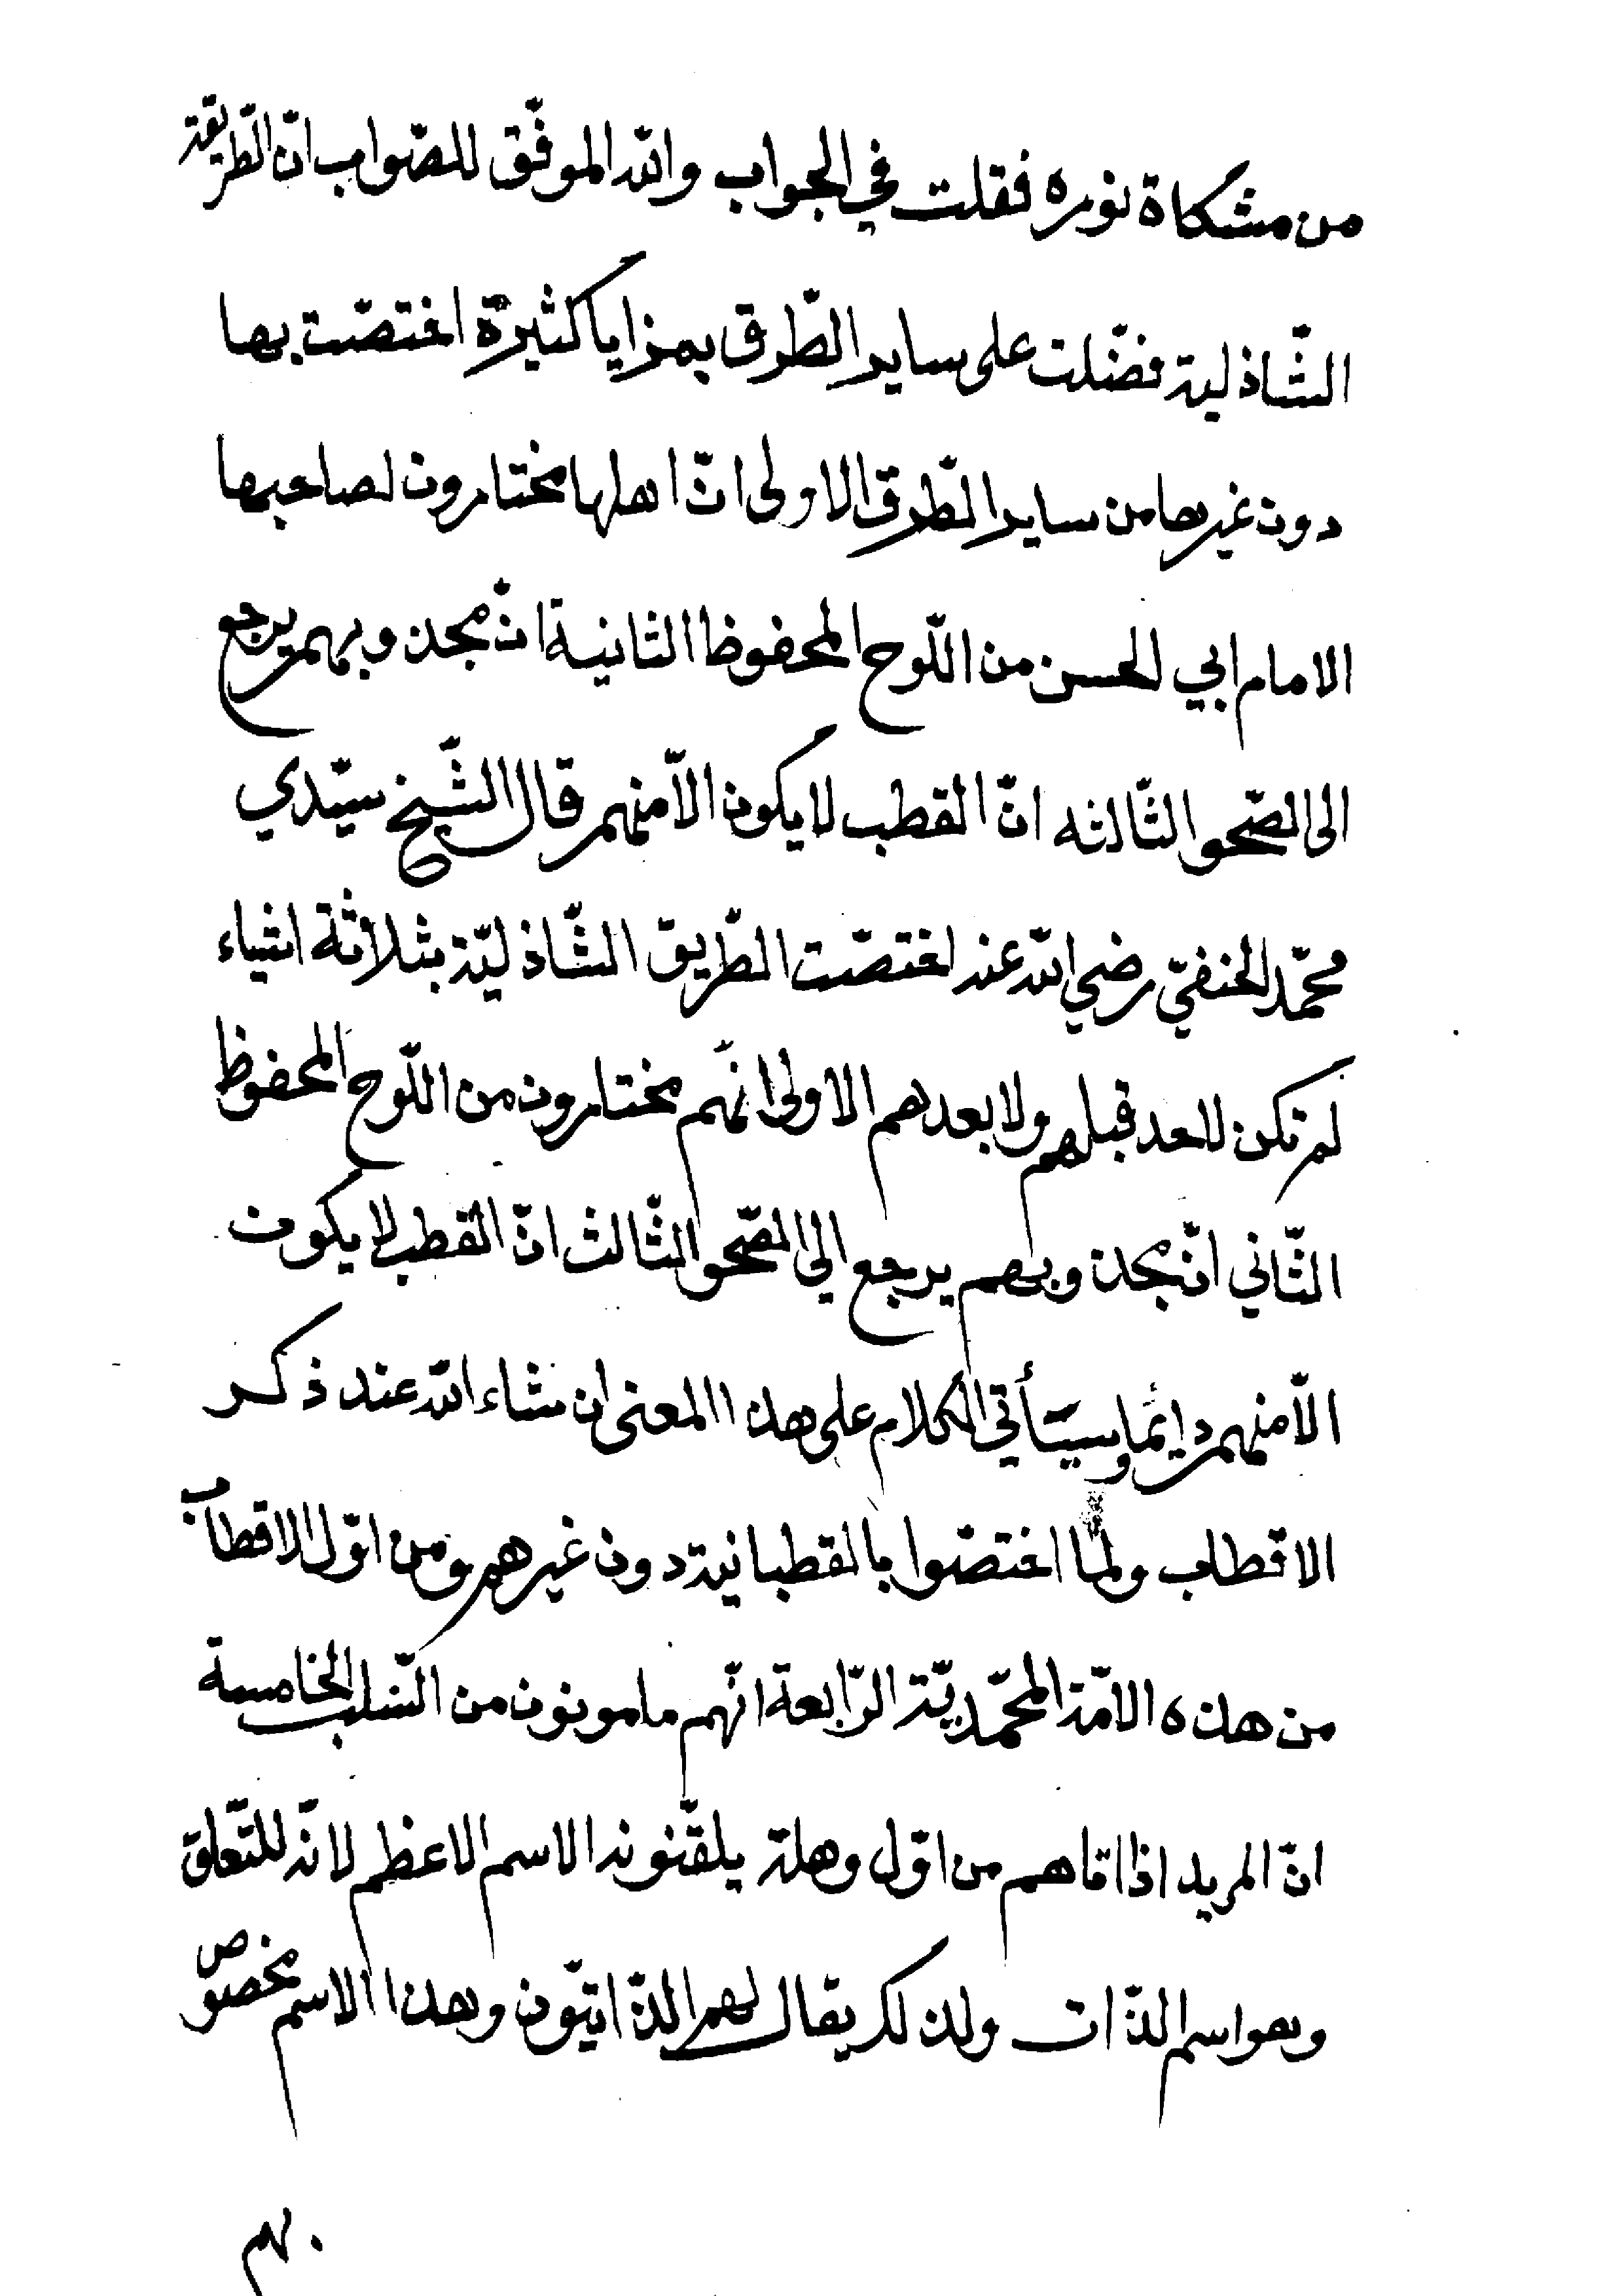 من مشكاة نوره فقلت في الجواب والله الموفّق للصّواب انّ الطّريقة
الشّاذلية فضّلت على ساير الطّرق بمزايا كثيرة اختصّت بها
دون غيرها من ساير الطّرق الاولى انّ اهلها مختارون لصاحبها
الامام ابي الحسن من اللّوح المحفوظ الثانية انّ مجذوبهم يرجع
الى الصّحو الثّالثه انّ القطب لا يكون الاّ منهم قال الشّيخ سيّدي
محمّد الحنفيّ رضي الله عنه اختصّت الطّريق الشّاذليّة بثلاثة اشياء
لم تكن لاحد قبلهم ولا بعدهم الاولى انّهم مختارون من اللّوح المحفوظ
الثّاني انّ مجذوبهم يرجع الي الصّحو الثّالث انّ القطب لا يكون
الاّ منهم دايمًا وسيأتي الكلام على هذا المعنى ان شاء الله عند ذكر
الاقطاب ولمّا اختصّوا بالقطبانية دون غيرهم ومن اوّل الاقطاب
من هذه الامّة المحمّديّة الرّابعة انّهم مامونون من السّلب الخامسة
انّ المريد اذا اتاهم من اوّل وهلة يلقّنونه الاسم الاعظم لانّه للتّعلق
وهو اسم الذّات ولذلك يقال لهم الذّاتيّون وهذا الاسم مخصوص
بهم